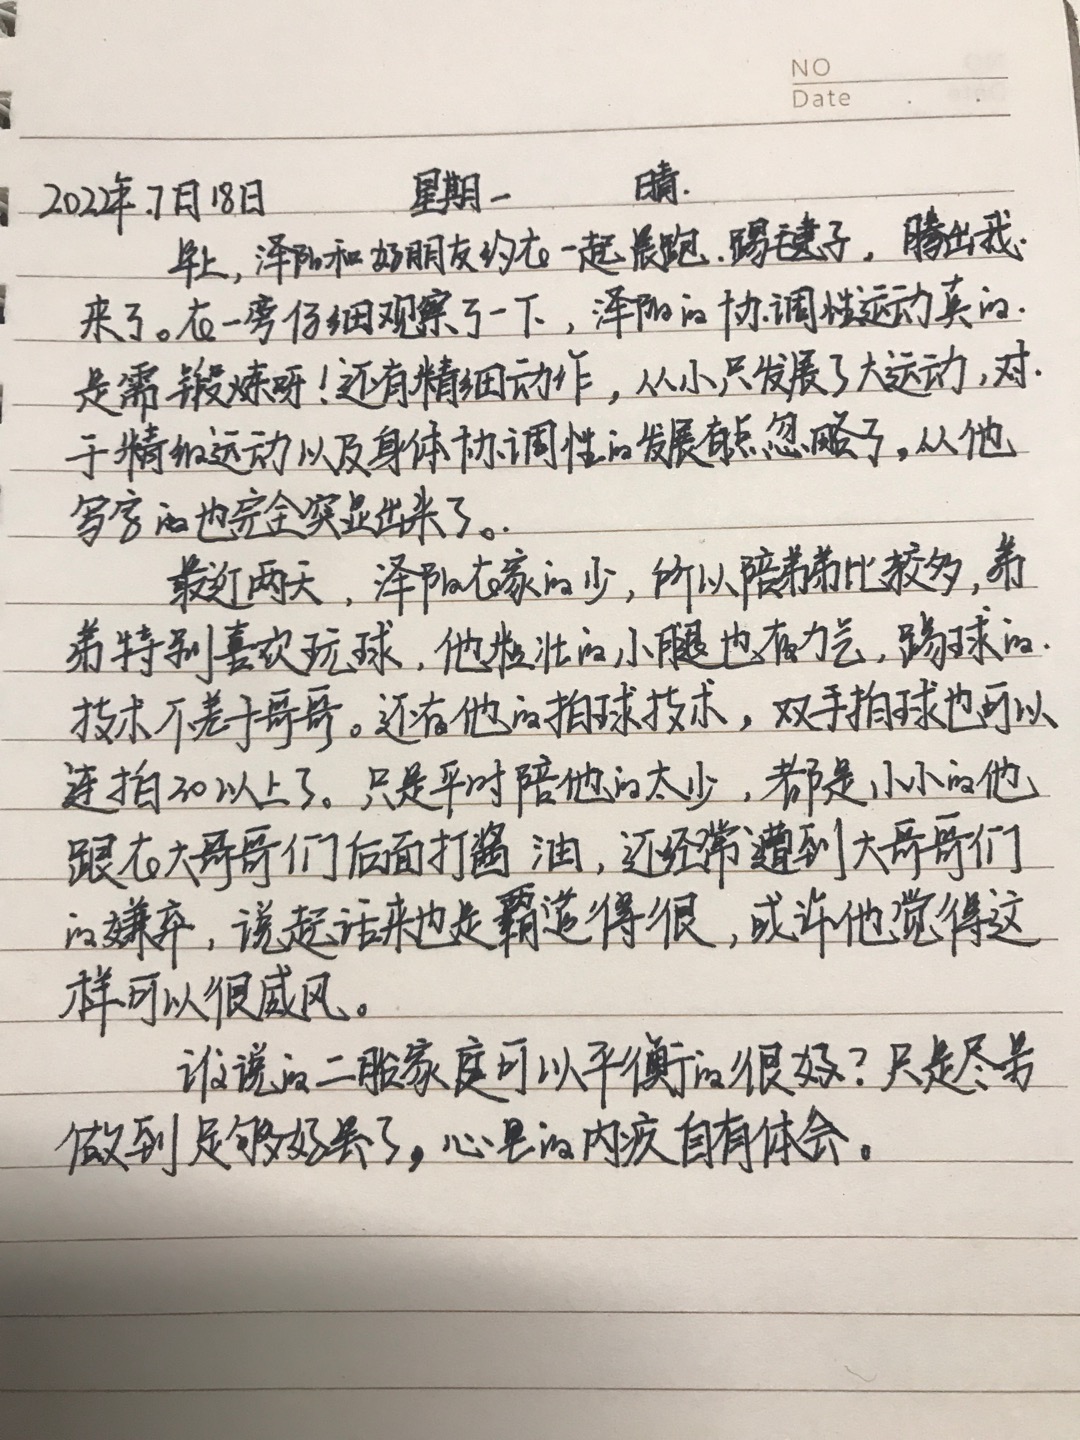 NO
Date
2022年.7月18日 星期一 晴.
早上,泽阳和好朋友约在一起晨跑.踢毽子,腾出我
来了。在一旁仔细观察了一下,泽阳的协调性运动真的
是需锻炼呀!还有精细动作,从小只发展了大运动,对
于精细运动以及身体协调性的发展有点忽略了。从他
写字的也完全突显出来了。
最近两天,泽阳在家的少,所以陪弟弟比较多,弟
弟特别喜欢玩球,他粗壮的小腿也有力气,踢球的
技术不差于哥哥。还有他的拍球技术,双手拍球也可以
连拍30以上了。只是平时陪他的太少,都是小小的他
跟在大哥哥们后面打酱油,还经常遭到大哥哥们
的嫌弃,说起话来也是霸道得很,或许他觉得这
样可以很威风。
谁说的二胎家庭可以平衡的很好?只是尽量
做到足够好罢了,心里的内疚自有体会。